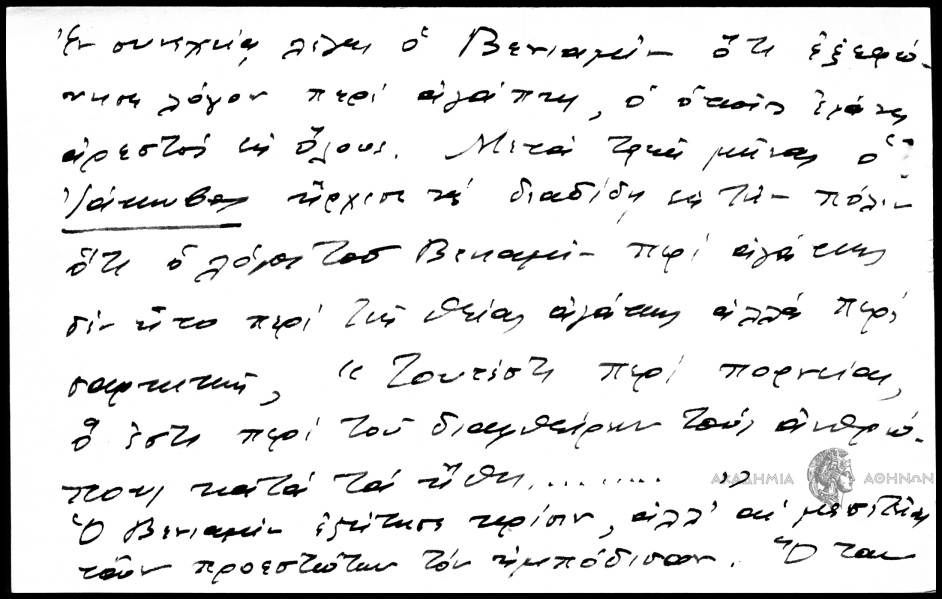 Ἐν συνεχείᾳ λέγει ὁ Βενιαμίν ὅτι ἐξεφώ-
νησε λόγον περί ἀγάπης, ὁ ὁποῖος ἐγένετο
ἀρεστός εἰς ὅλους. Μετά τρεῖς μῆνας ὁ
Ἰάκωβος ἤρχισε νά διαδίδῃ εἰς τήν πόλιν
ὅτι ὁ λόγος τοῦ Βενιαμίν περί ἀγάπης
δέν ἦτο περί τῆς θείας ἀγάπης ἀλλά περί
σαρκικῆς, "τουτέστι περί πορνείας,
ὅ ἐστι περί τοῦ διαφθείρειν τούς ἀνθρώ-
πους κατά τά ἤθη, ........ "
ΑΚΑΔΗΜΙΑ ΑΘΗΝΩΝ
Ὁ Βενιαμίν ἐζήτησε κρίσιν, ἀλλ' αἱ μεσιτεῖαι
τῶν προεστώτων τόν ἠμπόδισαν. Ὅταν